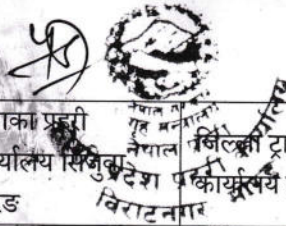 नेपाल सरकार
गृह मन्त्रालय
नेपाल प्रहरी
प्रदेश प्रहरी कार्यालय
विराटनगर
ाका प्रहरी
र्यालय सिजुवा
ङ
जिल्ला ट्रा
कार्यालय